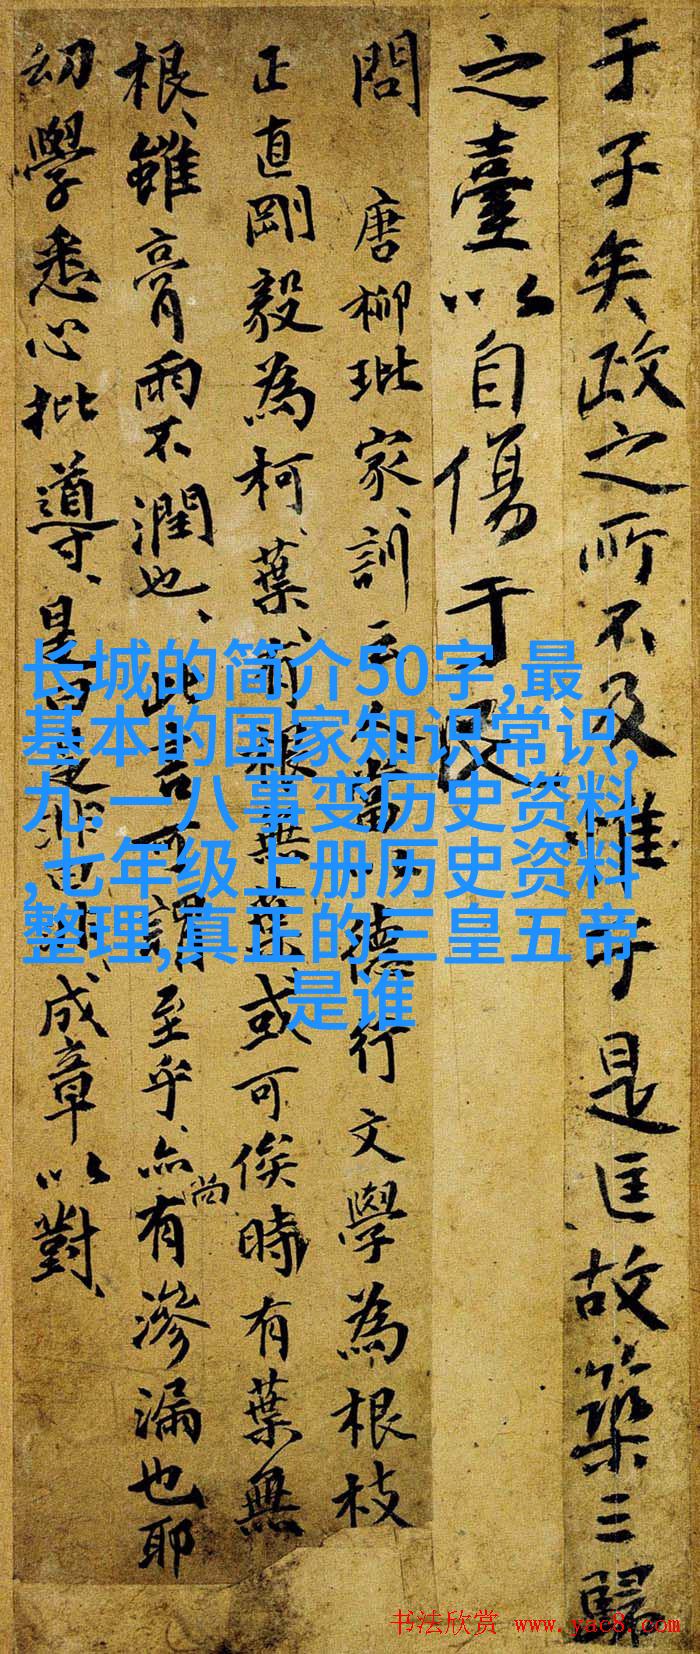 于子矣政之所不及惟于是匡故築三歸
之臺以自傷于民
問 唐柳玭家訓云夫當以德行文學為根枝
正直剛毅為柯葉有根無葉或可俟時有葉無
根雖膏雨不潤也此言可謂至乎亦尚有滲漏也耶
幼學悉心批導是曰是非曰成章以對
长城的简介50字,最
基本的国家知识常识,
九.一八事变历史资料
,七年级上册历史资料
整理,真正的三皇五帝
是谁
书法欣赏 www.yac8.com